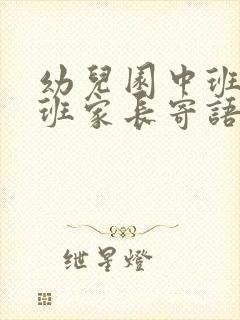 幼兒園中班
班家長寄語
絏星燈